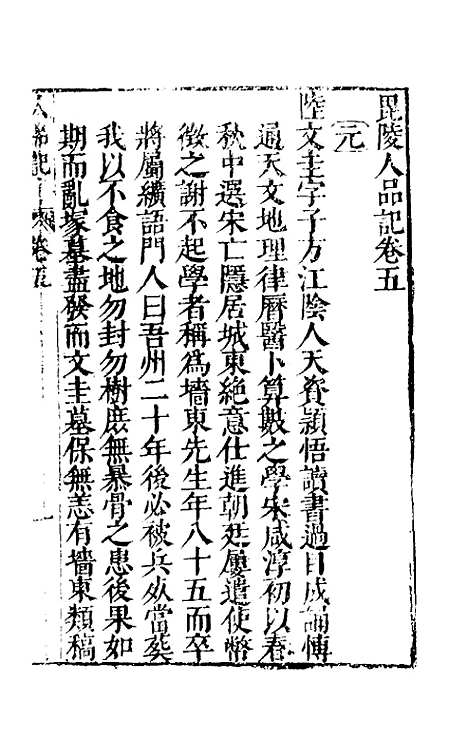 毘陵人品記卷五
元
陸文圭字子方江陰人天資穎悟讀書過目成誦博
通天文地理律曆醫卜算數之學宋咸淳初以春
秋中選宋亡隱居城東絕意仕進朝廷屢遣使幣
徵之謝不起學者稱爲墻東先生年八十五而卒
將屬纊語門人曰吾州二十年後必被兵㷀當葬
我以不食之地勿封勿樹庶無暴骨之患後果如
期而亂塚墓盡發而文圭墓保無恙有墻東類稿
人品記 卷五